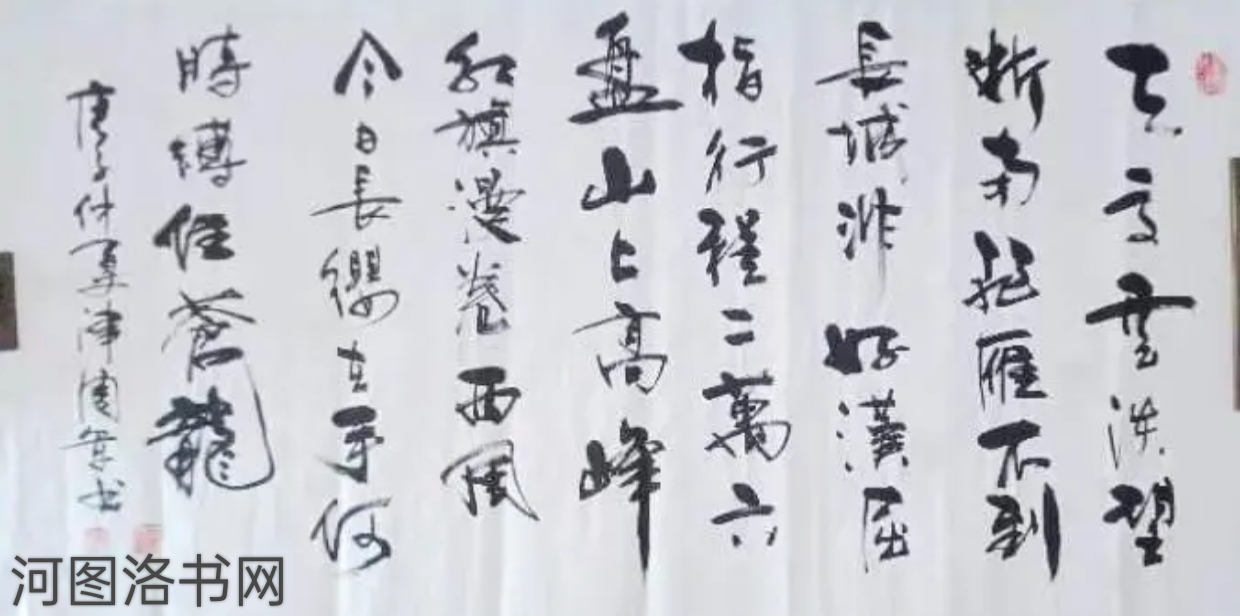 天高雲淡望
断南飛雁不到
長城非好漢屈
指行程二萬六
盘山上高峰
红旗漫卷西風
今日長纓在手何
時縛住蒼龍
庚子仲夏津周书
河图洛书网